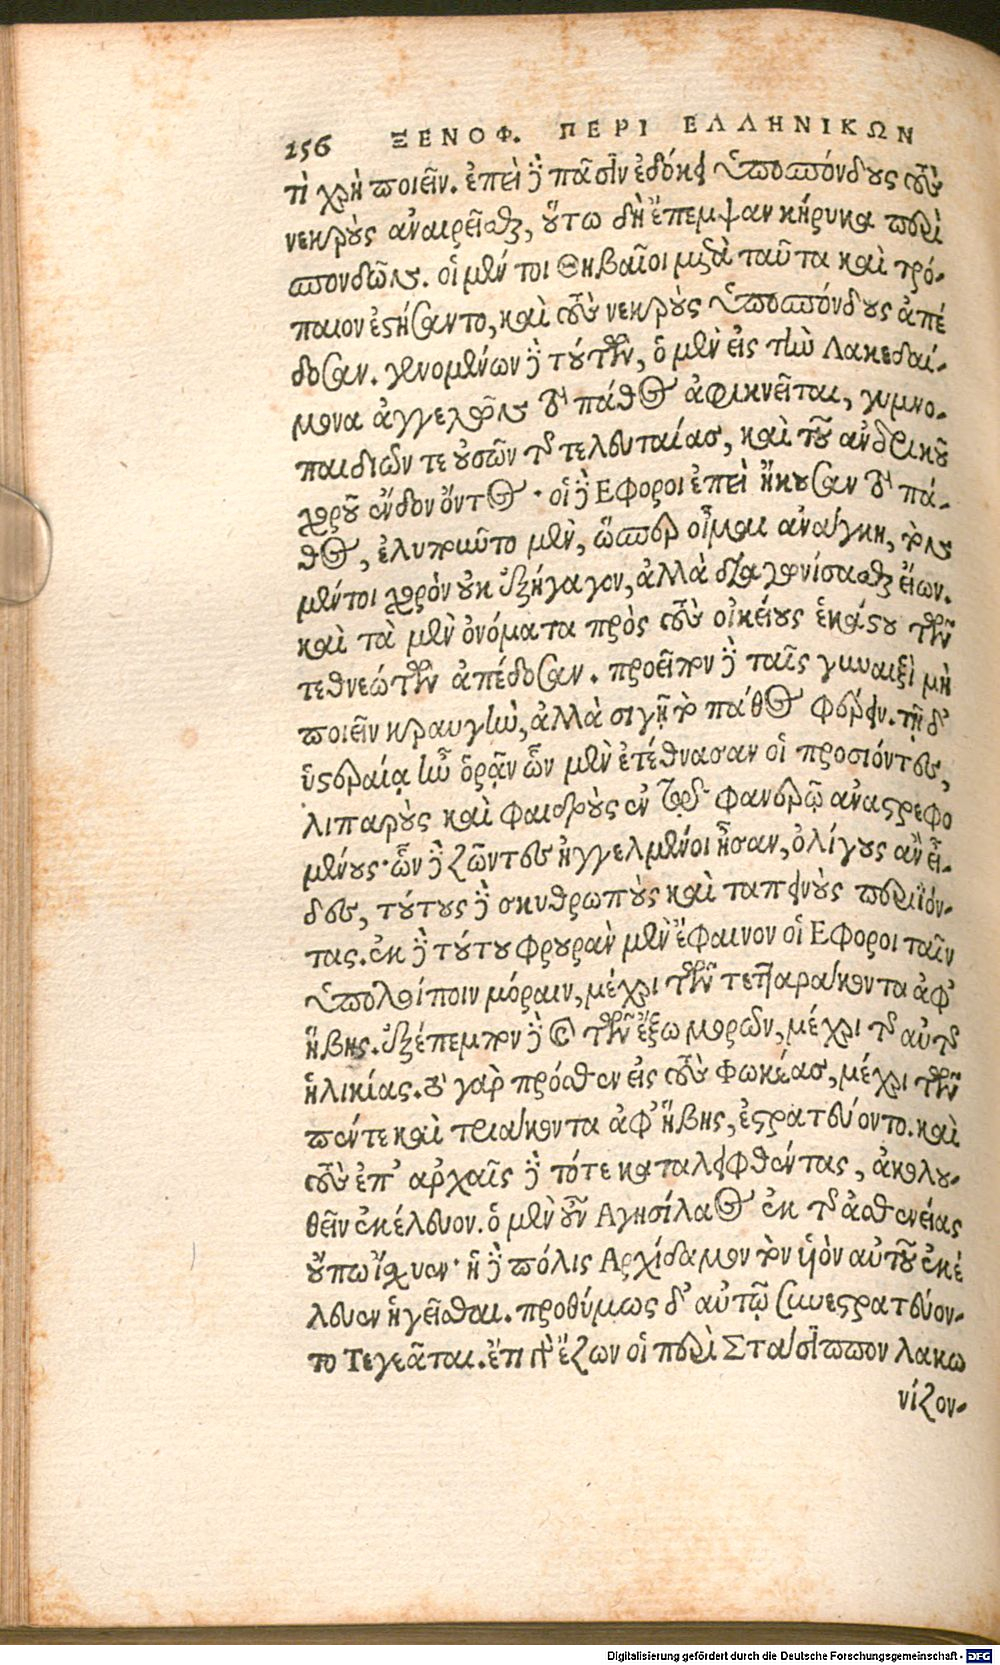 256 ΞΕΝΟΦ. ΠΕΡΙ ΕΛΛΗΝΙΚΩΝ
τὶ χρὴ ποιεῖν. ἐπεὶ δὲ πᾶσιν ἐδόκει ὑποσπόνδους τοὺς
νεκροὺς ἀναιρεῖσθαι, οὕτω δὴ ἔπεμψαν κήρυκα περὶ
σπονδῶν. οἱ μέν τοι Θηβαῖοι μετὰ ταῦτα καὶ τρό-
παιον ἐστήσαντο, καὶ τοὺς νεκροὺς ὑποσπόνδους ἀπέ
δοσαν. γενομένων δὲ τούτων, ὁ μὲν εἰς τὴν Λακεδαί-
μονα ἀγγελῶν τὸ πάθος ἀφικνεῖται, γυμνο-
παιδιῶν τε οὐσῶν τῆς τελευταίας, καὶ τοῦ ἀνδρικοῦ
χοροῦ ἔνδον ὄντος· οἱ δὲ Εφοροι ἐπεὶ ἤκουσαν τὸ πά-
θος, ἐλυποῦντο μὲν, ὥσπερ οἶμαι ἀνάγκη, τὸν
μέντοι χορὸν οὐκ ἐξήγαγον, ἀλλὰ διαγωνίσασθαι εἴων.
καὶ τὰ μὲν ὀνόματα πρὸς τοὺς οἰκείους ἑκάστου τῶν
τεθνεώτων ἀπέδοσαν. προεῖπον δὲ ταῖς γυναιξὶ μὴ
ποιεῖν κραυγὴν, ἀλλὰ σιγῇ τὸ πάθος φέρειν. τῇ δ'
ὑστεραίᾳ ἦν ὁρᾷν ὧν μὲν ἐτέθνασαν οἱ προσιόντες,
λιπαροὺς καὶ φαιδροὺς ἐν τῷ φανερῷ ἀναστρεφο
μένους· ὧν δὲ ζῶντες ἠγγελμένοι ἦσαν, ὀλίγους ἂν εἶ-
δες, τούτους δὲ σκυθρωποὺς καὶ ταπεινοὺς περιϊόν-
τας. ἐκ δὲ τούτου φρουρὰν μὲν ἔφαινον οἱ Εφοροι ταῖν
ὑπολοίποιν μόραιν, μέχρι τῶν τετταράκοντα ἀφ'
ἥβης. ἐξέπεμπον δὲ καὶ τῶν ἔξω μορῶν, μέχρι τῆς αὐτῆς
ἡλικίας. τὸ γὰρ πρόσθεν εἰς τοὺς Φωκέας, μέχρι τῶν
πέντε καὶ τριάκοντα ἀφ' ἥβης, ἐστρατεύοντο. καὶ
τοὺς ἐπ' ἀρχαῖς δὲ τότε καταλειφθέντας, ἀκολου-
θεῖν ἐκέλευον. ὁ μὲν οὖν Αγησίλαος ἐκ τῆς ἀσθενείας
οὔπω ἴσχυεν· ἡ δὲ πόλις Αρχίδαμον τὸν υἱὸν αὐτοῦ ἐκέ
λευεν ἡγεῖσθαι. προθύμως δ' αὐτῷ συνεστρατεύον-
το Τεγεᾶται. ἔτι γὰρ ἔζων οἱ περὶ Στάσιππον λακω
νίζον-
Digitalisierung gefördert durch die Deutsche Forschungsgemeinschaft - DFG